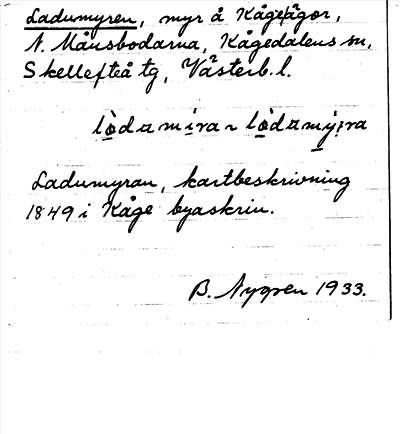 Ladumyren, myr å Kåge ägor,
N. Månsbodarna, Kågedalens sn,
Skellefteå tg, Västerb. l.
Ladumyran, kartbeskrivning
1849 i Kåge byaskrin.
B. Nygren 1933.